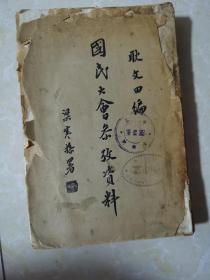 耿文田編
國民大會參攷資料
梁寒操署